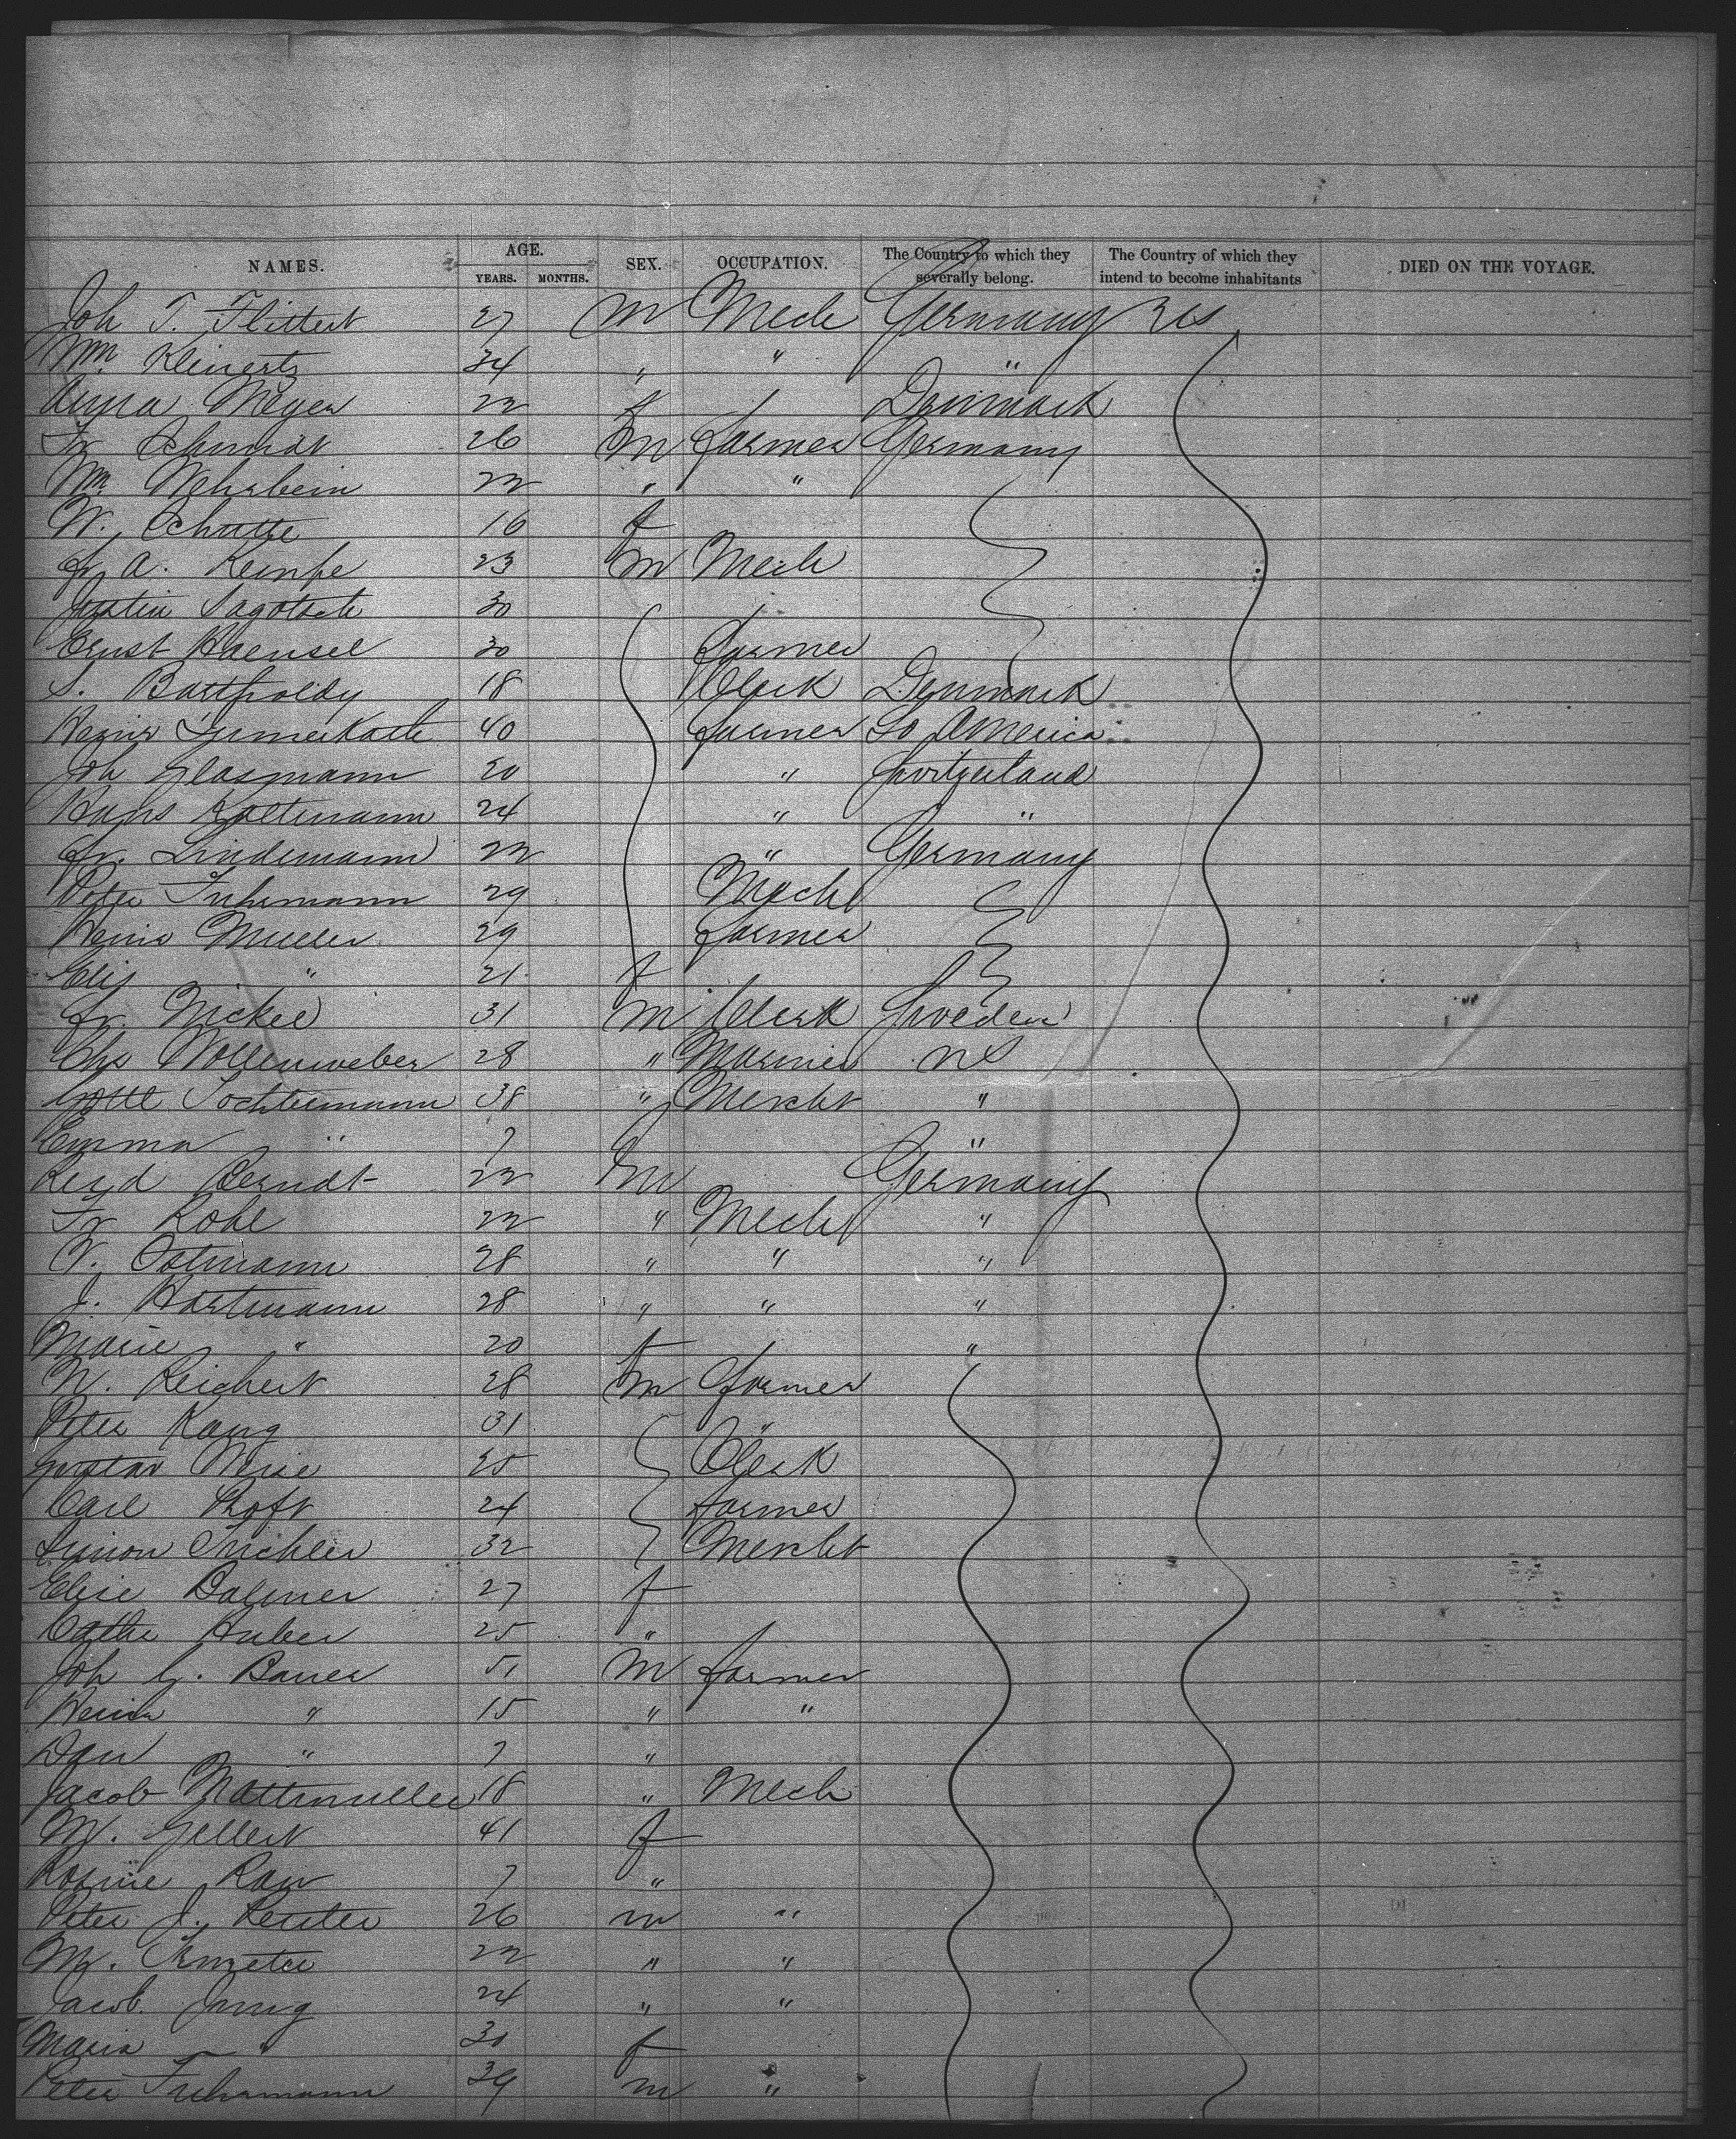 NAMES. AGE. YEARS. MONTHS. SEX. OCCUPATION. The Country to which they severally belong. The Country of which they intend to become inhabitants DIED ON THE VOYAGE.
Joh T. Flittert 27 m Mech Germany US
Wm. Kleinertz 34 " " "
Anna Meyer 22 f Denmark
Fr Schmidt 26 m farmer Germany
Wm. Wehrbein 22 " "
W. Schutte 16 f
Fr A. Kempe 23 m Mech
Justin 30
Ernst Haensel 30 farmer
S. Bartholdy 18 Clerk Denmark
40 farmer So America
Joh Glasmann 20 " Switzerland
Hans Koltmann 24 " "
Fr. Lindemann 22 " Germany
Peter Fuhrmann 29 Mech
Heinr Mueller 29 farmer
Elis " 21 f
Fr. Nickel 31 m Clerk Sweden
Chs Wollenweber 28 " Mariner US
Gottl Tochtermann 38 " Mercht "
Emma " 7 f "
Berndt 22 m Germany
Fr Kohl 22 " Mech "
Ostmann 28 " " "
J. Hartmann 28 " " "
Marie " 20 f "
N. Reichert 28 m farmer
Peter Kang 31 "
Gustav Weise 25 Clerk
Carl Proft 24 farmer
Simon Trichler 32 Mercht
Elise Balmer 27 f
Cathe Huber 25 "
Joh G. Bauer 51 m farmer
Heinr " 15 " "
Dan " 7 "
Jacob Nattmuller 18 " Mech
M. Gellert 41 f
Rosine Rau 7 "
Peter J. Reuter 26 m "
M. 22 " "
Jacob Jung 24 " "
Maria " 30 f
Peter Fuhrmann 39 m "